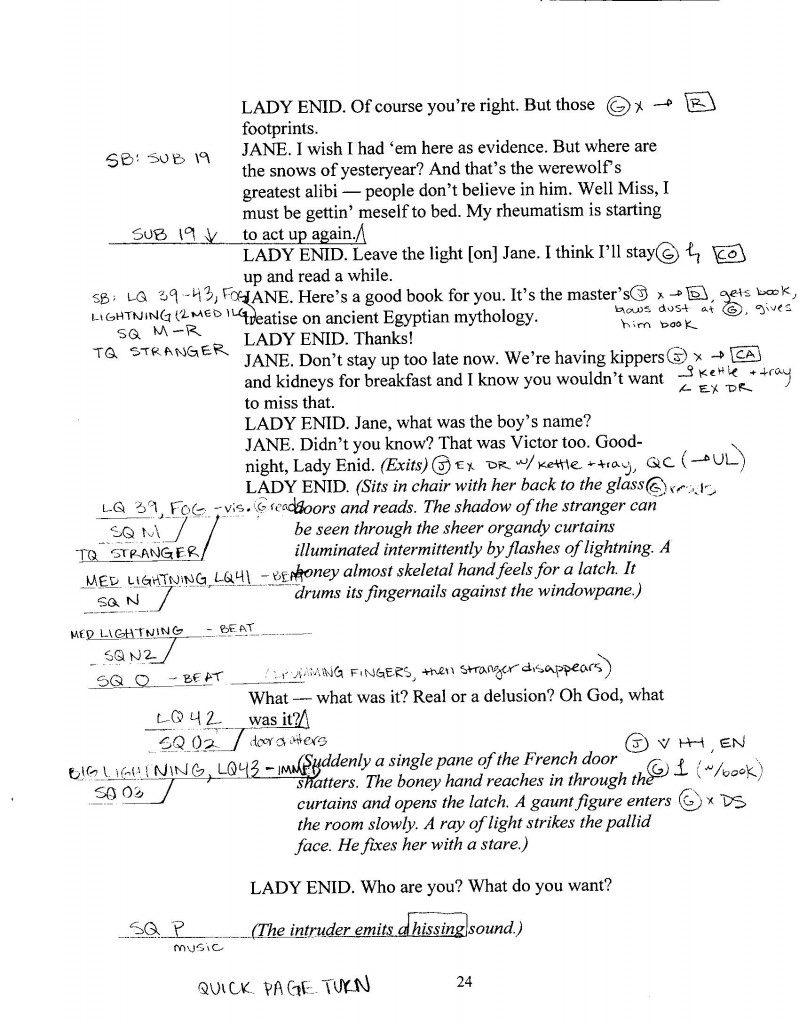 LADY ENID. Of course you're right. But those G x → R
footprints.
JANE. I wish I had 'em here as evidence. But where are
SB: SUB 19
the snows of yesteryear? And that's the werewolf's
greatest alibi — people don't believe in him. Well Miss, I
must be gettin' meself to bed. My rheumatism is starting
SUB 19 ↓ to act up again.
LADY ENID. Leave the light [on] Jane. I think I'll stay G CO
up and read a while.
SB: LQ 39-43, FOG JANE. Here's a good book for you. It's the master's J x → D, gets book,
LIGHTNING (2 MED 1LG) treatise on ancient Egyptian mythology. blows dust at G, gives
him book
SQ M-R LADY ENID. Thanks!
TQ STRANGER JANE. Don't stay up too late now. We're having kippers J x → CA
and kidneys for breakfast and I know you wouldn't want kettle + tray
EX DR
to miss that.
LADY ENID. Jane, what was the boy's name?
JANE. Didn't you know? That was Victor too. Good-
night, Lady Enid. (Exits) J EX DR w/ kettle + tray, QC (→UL)
LADY ENID. (Sits in chair with her back to the glass G reads
LQ 39, FOG - vis. G reads doors and reads. The shadow of the stranger can
SQ M be seen through the sheer organdy curtains
TQ STRANGER illuminated intermittently by flashes of lightning. A
MED LIGHTNING, LQ41 - BEAT boney almost skeletal hand feels for a latch. It
SQ N drums its fingernails against the windowpane.)
MED LIGHTNING - BEAT
SQ N2
SQ O - BEAT (DRUMMING FINGERS, then stranger disappears)
What — what was it? Real or a delusion? Oh God, what
LQ 42 was it?
SQ O2 door shatters
J V HH, EN
BIG LIGHTNING, LQ43 - IMMED (Suddenly a single pane of the French door
SQ O3 shatters. The boney hand reaches in through the G (w/book)
curtains and opens the latch. A gaunt figure enters G x DS
the room slowly. A ray of light strikes the pallid
face. He fixes her with a stare.)
LADY ENID. Who are you? What do you want?
SQ P (The intruder emits a hissing sound.)
music
QUICK PAGE TURN 24